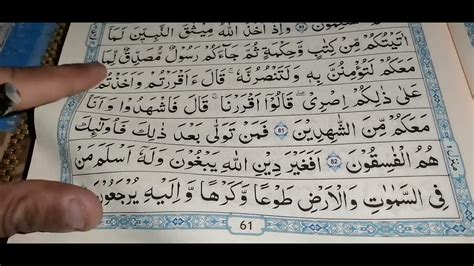 الفسقون ۝ واذ اخذ الله ميثاق النبيّن لما
اتيتكم من كتب وحكمة ثم جاءكم رسول مصدق لما
معكم لتؤمنن به ولتنصرنه ۚ قال ءاقررتم واخذتم
على ذلكم اصرى ۚ قالوا اقررنا ۚ قال فاشهدوا وانا
معكم من الشهدين 81 فمن تولى بعد ذلك فاولئك
هم الفسقون 82 افغير دين الله يبغون وله اسلم من
فى السموت والارض طوعا وكرها واليه يرجعون
61